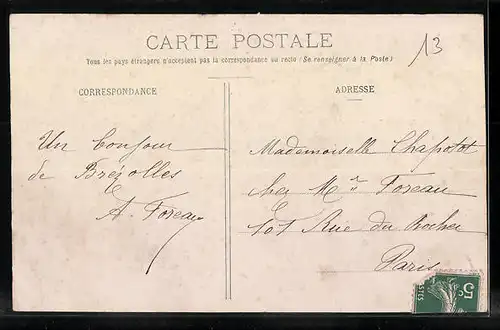 CARTE POSTALE
13
Tous les pays étrangers n'acceptent pas la correspondance au recto (Se renseigner à la Poste)
CORRESPONDANCE
ADRESSE
Un bonjour
de Brézolles
A. Foreau
Mademoiselle Chapotot
chez Mr Foreau
101 Rue du Rocher
Paris
5c
POSTES